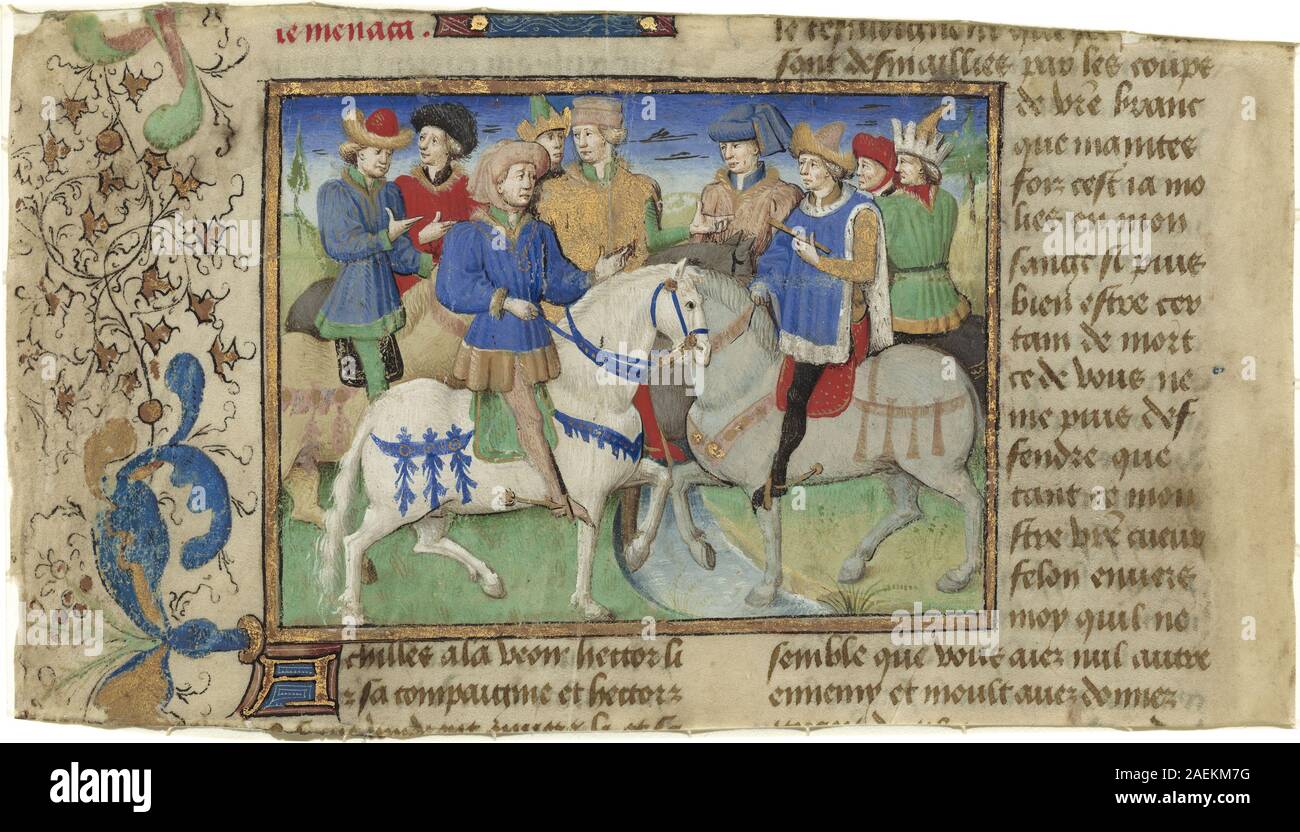 le menaca .
Achilles ala veoir hector li
z sa compaignie et hector z
le tesmoignent que
sont desmailliez par les coups
de vre branc
que maintes
foiz cest ia mo
liez en mon
sang si puis
bien estre cer
tain de mort
ce de vous ne
me puis def
fendre que
tant ce mon
stre vre cueur
felon envers
moy quil ne
semble que vous aiez nul autre
ennemy et moult avez donnez
alamy
Image ID: 2AEKM7G
www.alamy.com